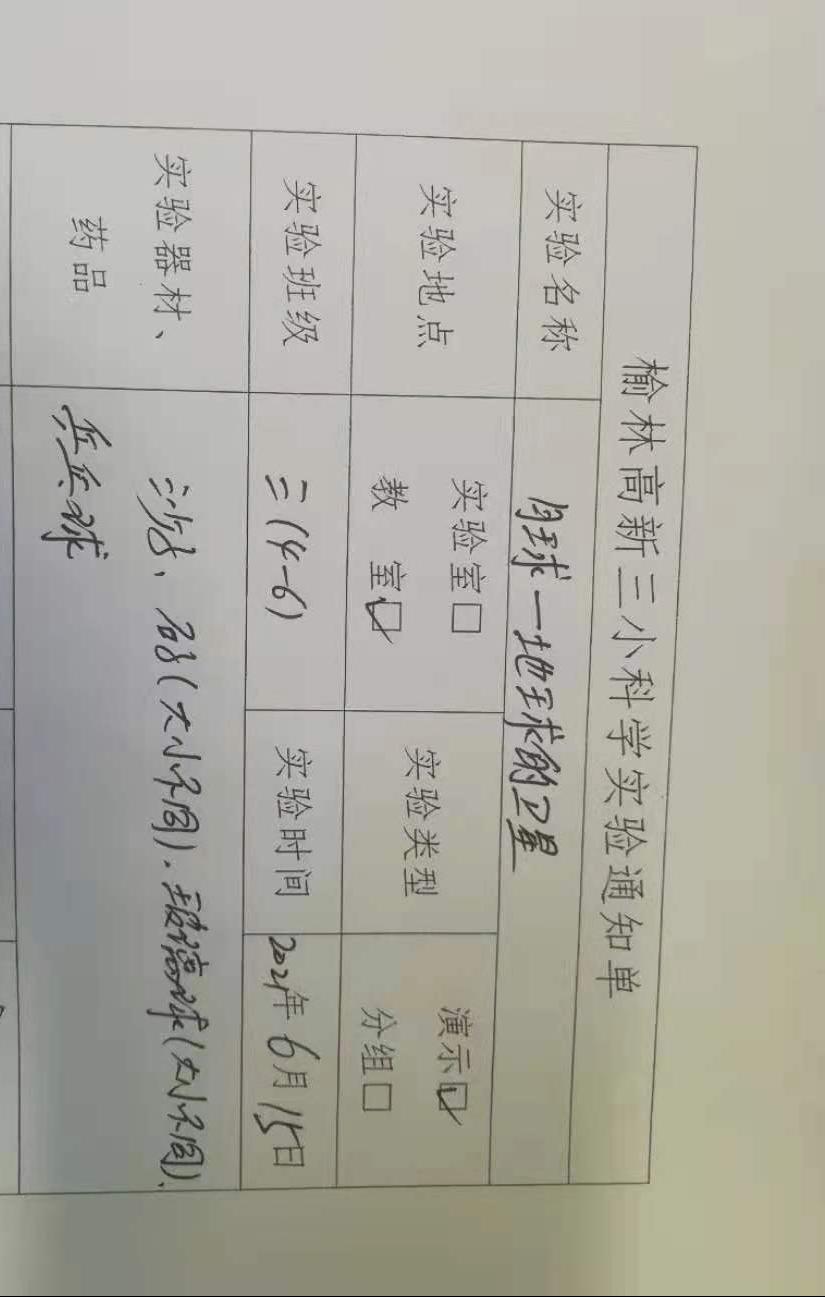 榆林高新三小科学实验通知单
实验名称 月球—地球的卫星
实验地点 实验室□ 实验类型 演示☑
教 室☑ 分组□
实验班级 三(4-6) 实验时间 2021年6月15日
实验器材、 沙子、石子(大小不同)、玻璃球(大小不同)、
药品 乒乓球